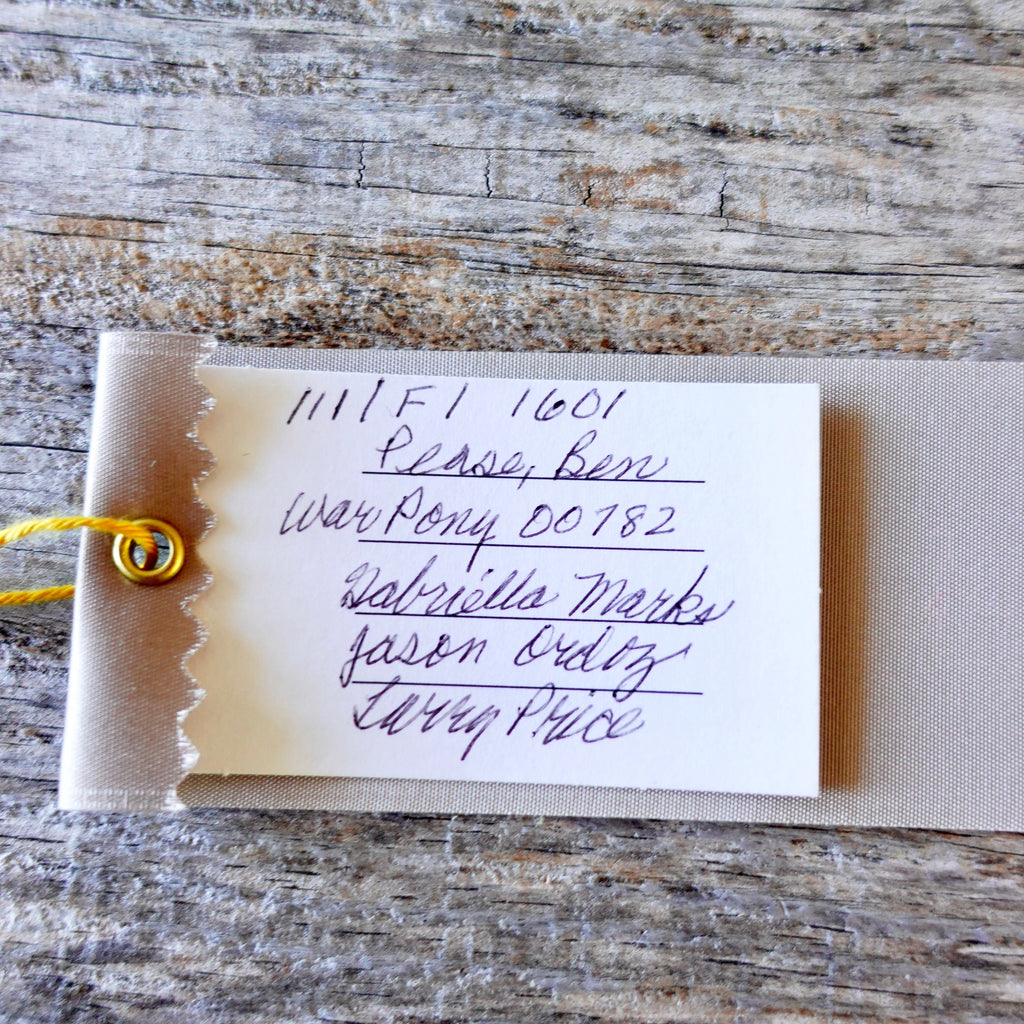 1111/F1 1601
Pease, Ben
War Pony 00782
Gabriella Marks
Jason Ordaz
Larry Price